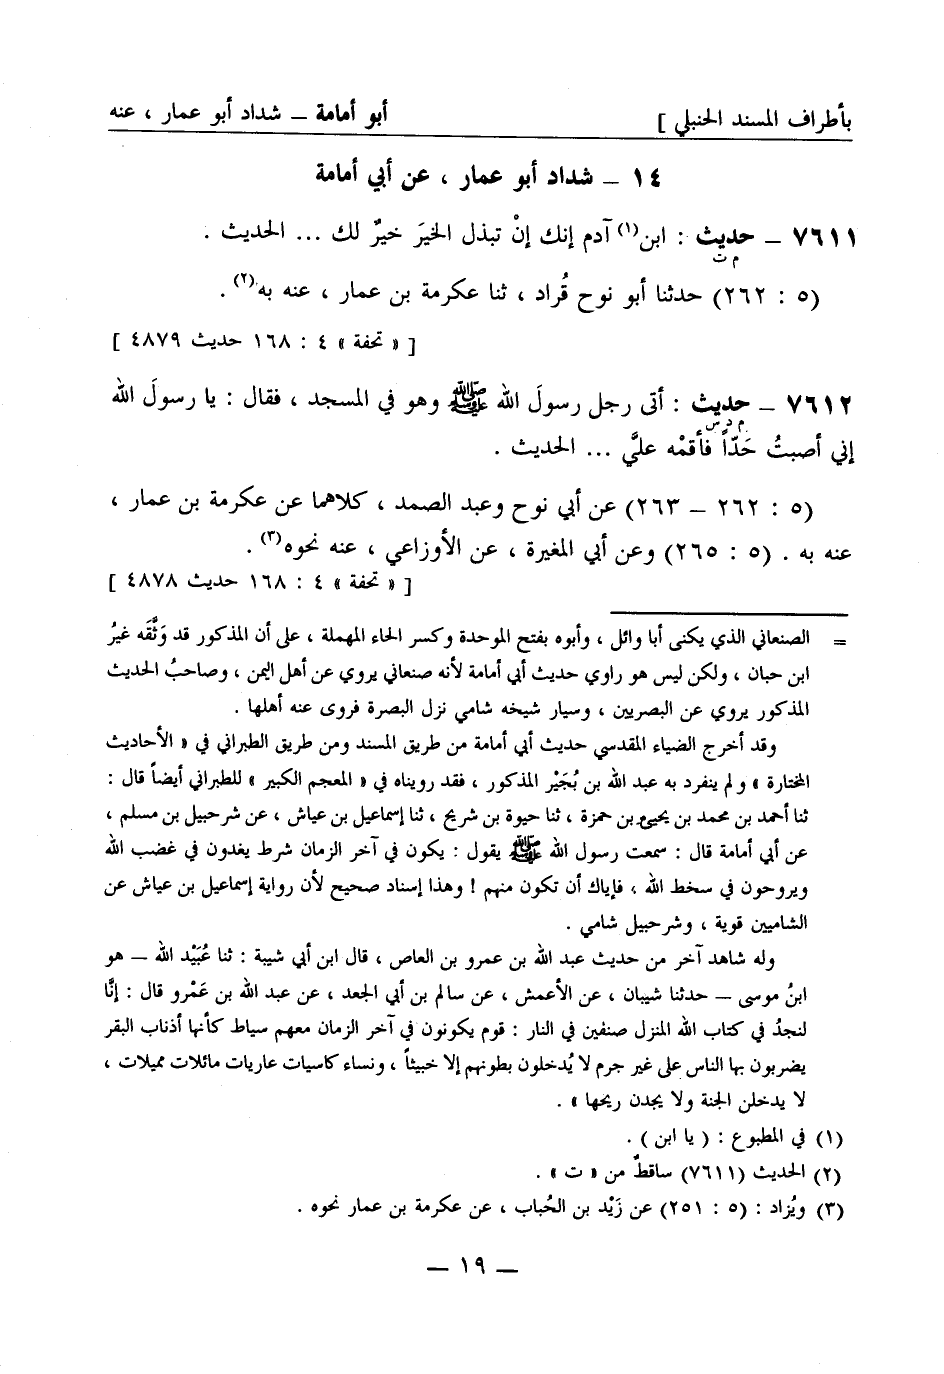 بأطراف المسند الحنبلي ] أبو أمامة – شداد أبو عمار ، عنه
١٤ – شداد أبو عمار ، عن أبي أمامة
٧٦١١ – حديث : ابن(١) آدم إنك إنْ تبذل الخيرَ خيرٌ لك ... الحديث .
م ت
(٥ : ٢٦٢) حدثنا أبو نوح قُراد ، ثنا عكرمة بن عمار ، عنه به(٢) .
[ « تحفة » ٤ : ١٦٨ حديث ٤٨٧٩ ]
٧٦١٢ – حديث : أتى رجل رسولَ الله ﷺ وهو في المسجد ، فقال : يا رسولَ الله
م د س
إني أصبتُ حَدّاً فأقمْه عليَّ ... الحديث .
(٥ : ٢٦٢ – ٢٦٣) عن أبي نوح وعبد الصمد ، كلاهما عن عكرمة بن عمار ،
عنه به . (٥ : ٢٦٥) وعن أبي المغيرة ، عن الأوزاعي ، عنه نحوه(٣) .
[ « تحفة » ٤ : ١٦٨ حديث ٤٨٧٨ ]
= الصنعاني الذي يكنى أبا وائل ، وأبوه بفتح الموحدة وكسر الحاء المهملة ، على أن المذكور قد وَثَّقَه غيرُ
ابن حبان ، ولكن ليس هو راوي حديث أبي أمامة لأنه صنعاني يروي عن أهل اليمن ، وصاحبُ الحديث
المذكور يروي عن البصريين ، وسيار شيخه شامي نزل البصرة فروى عنه أهلها .
وقد أخرج الضياء المقدسي حديث أبي أمامة من طريق المسند ومن طريق الطبراني في « الأحاديث
المختارة » ولم ينفرد به عبد الله بن بُجَيْر المذكور ، فقد رويناه في « المعجم الكبير » للطبراني أيضاً قال :
ثنا أحمد بن محمد بن يحيى بن حمزة ، ثنا حيوة بن شريح ، ثنا إسماعيل بن عياش ، عن شرحبيل بن مسلم ،
عن أبي أمامة قال : سمعت رسول الله ﷺ يقول : يكون في آخر الزمان شرط يغدون في غضب الله
ويروحون في سخط الله ، فإياك أن تكون منهم ! وهذا إسناد صحيح لأن رواية إسماعيل بن عياش عن
الشاميين قوية ، وشرحبيل شامي .
وله شاهد آخر من حديث عبد الله بن عمرو بن العاص ، قال ابن أبي شيبة : ثنا عُبَيْد الله – هو
ابنُ موسى – حدثنا شيبان ، عن الأعمش ، عن سالم بن أبي الجعد ، عن عبد الله بن عَمْرو قال : إنَّا
لنجدُ في كتاب الله المنزل صنفين في النار : قوم يكونون في آخر الزمان معهم سياط كأنها أذناب البقر
يضربون بها الناس على غير جرم لا يُدخلون بطونهم إلا خبيثاً ، ونساء كاسيات عاريات مائلات مميلات ،
لا يدخلن الجنة ولا يجدن ريحها » .
(١) في المطبوع : ( يا ابن ) .
(٢) الحديث (٧٦١١) ساقطٌ من « ت » .
(٣) ويُزاد : (٥ : ٢٥١) عن زَيْد بن الحُباب ، عن عكرمة بن عمار نحوه .
– ١٩ –